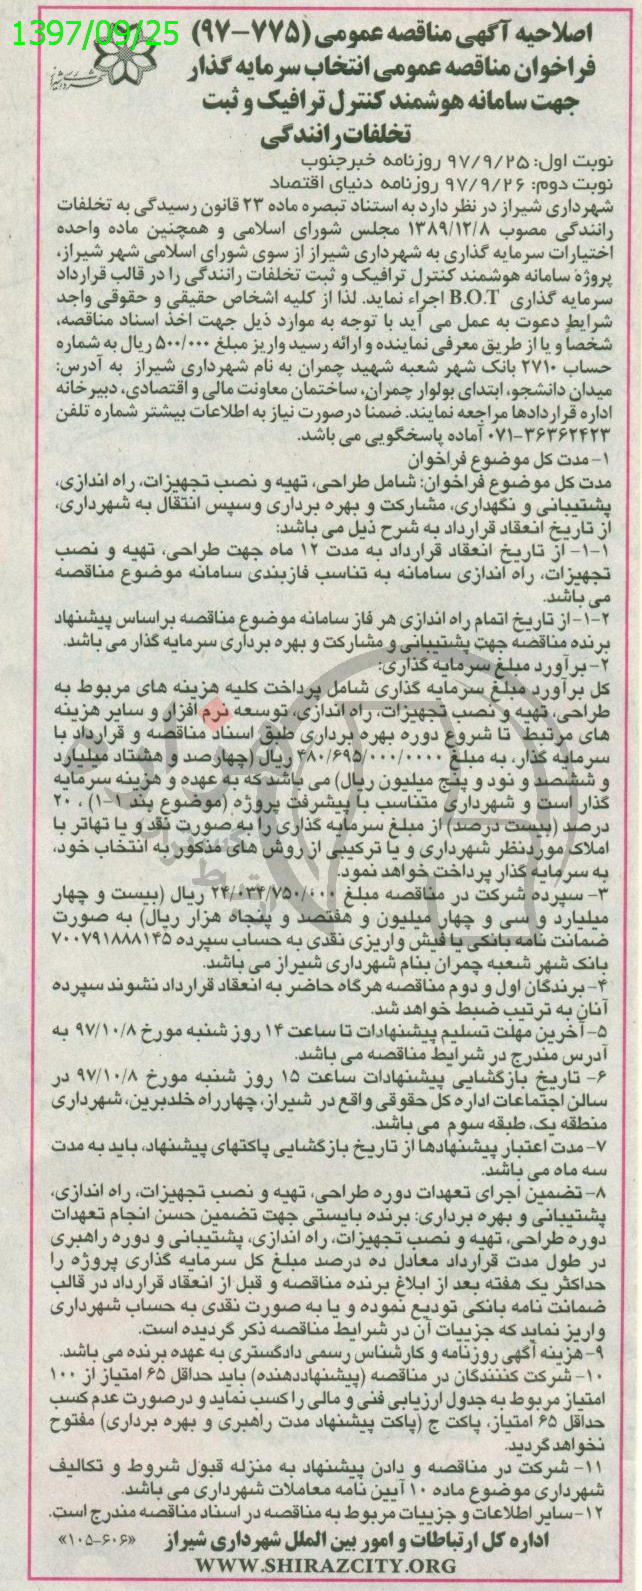 1397/09/25
اصلاحیه آگهی مناقصه عمومی (۷۷۵-۹۷)
فراخوان مناقصه عمومی انتخاب سرمایه گذار
جهت سامانه هوشمند کنترل ترافیک و ثبت
تخلفات رانندگی
نوبت اول: ۹۷/۹/۲۵ روزنامه خبرجنوب
نوبت دوم: ۹۷/۹/۲۶ روزنامه دنیای اقتصاد
شهرداری شیراز در نظر دارد به استناد تبصره ماده ۲۳ قانون رسیدگی به تخلفات
رانندگی مصوب ۱۳۸۹/۱۲/۸ مجلس شورای اسلامی و همچنین ماده واحده
اختیارات سرمایه گذاری به شهرداری شیراز از سوی شورای اسلامی شهر شیراز،
پروژه سامانه هوشمند کنترل ترافیک و ثبت تخلفات رانندگی را در قالب قرارداد
سرمایه گذاری B.O.T اجراء نماید. لذا از کلیه اشخاص حقیقی و حقوقی واجد
شرایط دعوت به عمل می آید با توجه به موارد ذیل جهت اخذ اسناد مناقصه،
شخصاً و یا از طریق معرفی نماینده و ارائه رسید واریز مبلغ ۵۰۰/۰۰۰ ریال به شماره
حساب ۲۷۱۰ بانک شهر شعبه شهید چمران به نام شهرداری شیراز به آدرس:
میدان دانشجو، ابتدای بولوار چمران، ساختمان معاونت مالی و اقتصادی، دبیرخانه
اداره قراردادها مراجعه نمایند. ضمناً درصورت نیاز به اطلاعات بیشتر شماره تلفن
۰۷۱-۳۶۳۶۲۴۲۳ آماده پاسخگویی می باشد.
۱- مدت کل موضوع فراخوان
مدت کل موضوع فراخوان: شامل طراحی، تهیه و نصب تجهیزات، راه اندازی،
پشتیبانی و نگهداری، مشارکت و بهره برداری وسپس انتقال به شهرداری،
از تاریخ انعقاد قرارداد به شرح ذیل می باشد:
۱-۱- از تاریخ انعقاد قرارداد به مدت ۱۲ ماه جهت طراحی، تهیه و نصب
تجهیزات، راه اندازی سامانه به تناسب فازبندی سامانه موضوع مناقصه
می باشد.
۱-۲- از تاریخ اتمام راه اندازی هر فاز سامانه موضوع مناقصه براساس پیشنهاد
برنده مناقصه جهت پشتیبانی و مشارکت و بهره برداری سرمایه گذار می باشد.
۲- برآورد مبلغ سرمایه گذاری:
کل برآورد مبلغ سرمایه گذاری شامل پرداخت کلیه هزینه های مربوط به
طراحی، تهیه و نصب تجهیزات، راه اندازی، توسعه نرم افزار و سایر هزینه
های مرتبط تا شروع دوره بهره برداری طبق اسناد مناقصه و قرارداد با
سرمایه گذار، به مبلغ ۴۸۰/۶۹۵/۰۰۰/۰۰۰۰ ریال (چهارصد و هشتاد میلیارد
و ششصد و نود و پنج میلیون ریال) می باشد که به عهده و هزینه سرمایه
گذار است و شهرداری متناسب با پیشرفت پروژه (موضوع بند ۱-۱) ، ۲۰
درصد (بیست درصد) از مبلغ سرمایه گذاری را به صورت نقد و یا تهاتر با
املاک موردنظر شهرداری و یا ترکیبی از روش های مذکور به انتخاب خود،
به سرمایه گذار پرداخت خواهد نمود.
۳- سپرده شرکت در مناقصه مبلغ ۲۴/۰۳۴/۷۵۰/۰۰۰ ریال (بیست و چهار
میلیارد و سی و چهار میلیون و هفتصد و پنجاه هزار ریال) به صورت
ضمانت نامه بانکی یا فیش واریزی نقدی به حساب سپرده ۷۰۰۷۹۱۸۸۸۱۴۵
بانک شهر شعبه چمران بنام شهرداری شیراز می باشد.
۴- برندگان اول و دوم مناقصه هرگاه حاضر به انعقاد قرارداد نشوند سپرده
آنان به ترتیب ضبط خواهد شد.
۵- آخرین مهلت تسلیم پیشنهادات تا ساعت ۱۴ روز شنبه مورخ ۹۷/۱۰/۸ به
آدرس مندرج در شرایط مناقصه می باشد.
۶- تاریخ بازگشایی پیشنهادات ساعت ۱۵ روز شنبه مورخ ۹۷/۱۰/۸ در
سالن اجتماعات اداره کل حقوقی واقع در شیراز، چهارراه خلدبرین، شهرداری
منطقه یک، طبقه سوم می باشد.
۷- مدت اعتبار پیشنهادها از تاریخ بازگشایی پاکتهای پیشنهاد، باید به مدت
سه ماه می باشد.
۸- تضمین اجرای تعهدات دوره طراحی، تهیه و نصب تجهیزات، راه اندازی،
پشتیبانی و بهره برداری: برنده بایستی جهت تضمین حسن انجام تعهدات
دوره طراحی، تهیه و نصب تجهیزات، راه اندازی، پشتیبانی و دوره راهبری
در طول مدت قرارداد معادل ده درصد مبلغ کل سرمایه گذاری پروژه را
حداکثر یک هفته بعد از ابلاغ برنده مناقصه و قبل از انعقاد قرارداد در قالب
ضمانت نامه بانکی تودیع نموده و یا به صورت نقدی به حساب شهرداری
واریز نماید که جزییات آن در شرایط مناقصه ذکر گردیده است.
۹- هزینه آگهی روزنامه و کارشناس رسمی دادگستری به عهده برنده می باشد.
۱۰- شرکت کنندگان در مناقصه (پیشنهاددهنده) باید حداقل ۶۵ امتیاز از ۱۰۰
امتیاز مربوط به جدول ارزیابی فنی و مالی را کسب نماید و درصورت عدم کسب
حداقل ۶۵ امتیاز، پاکت ج (پاکت پیشنهاد مدت راهبری و بهره برداری) مفتوح
نخواهد گردید.
۱۱- شرکت در مناقصه و دادن پیشنهاد به منزله قبول شروط و تکالیف
شهرداری موضوع ماده ۱۰ آیین نامه معاملات شهرداری می باشد.
۱۲- سایر اطلاعات و جزییات مربوط به مناقصه در اسناد مناقصه مندرج است.
اداره کل ارتباطات و امور بین الملل شهرداری شیراز «۱۰۵-۶۰۶»
WWW.SHIRAZCITY.ORG